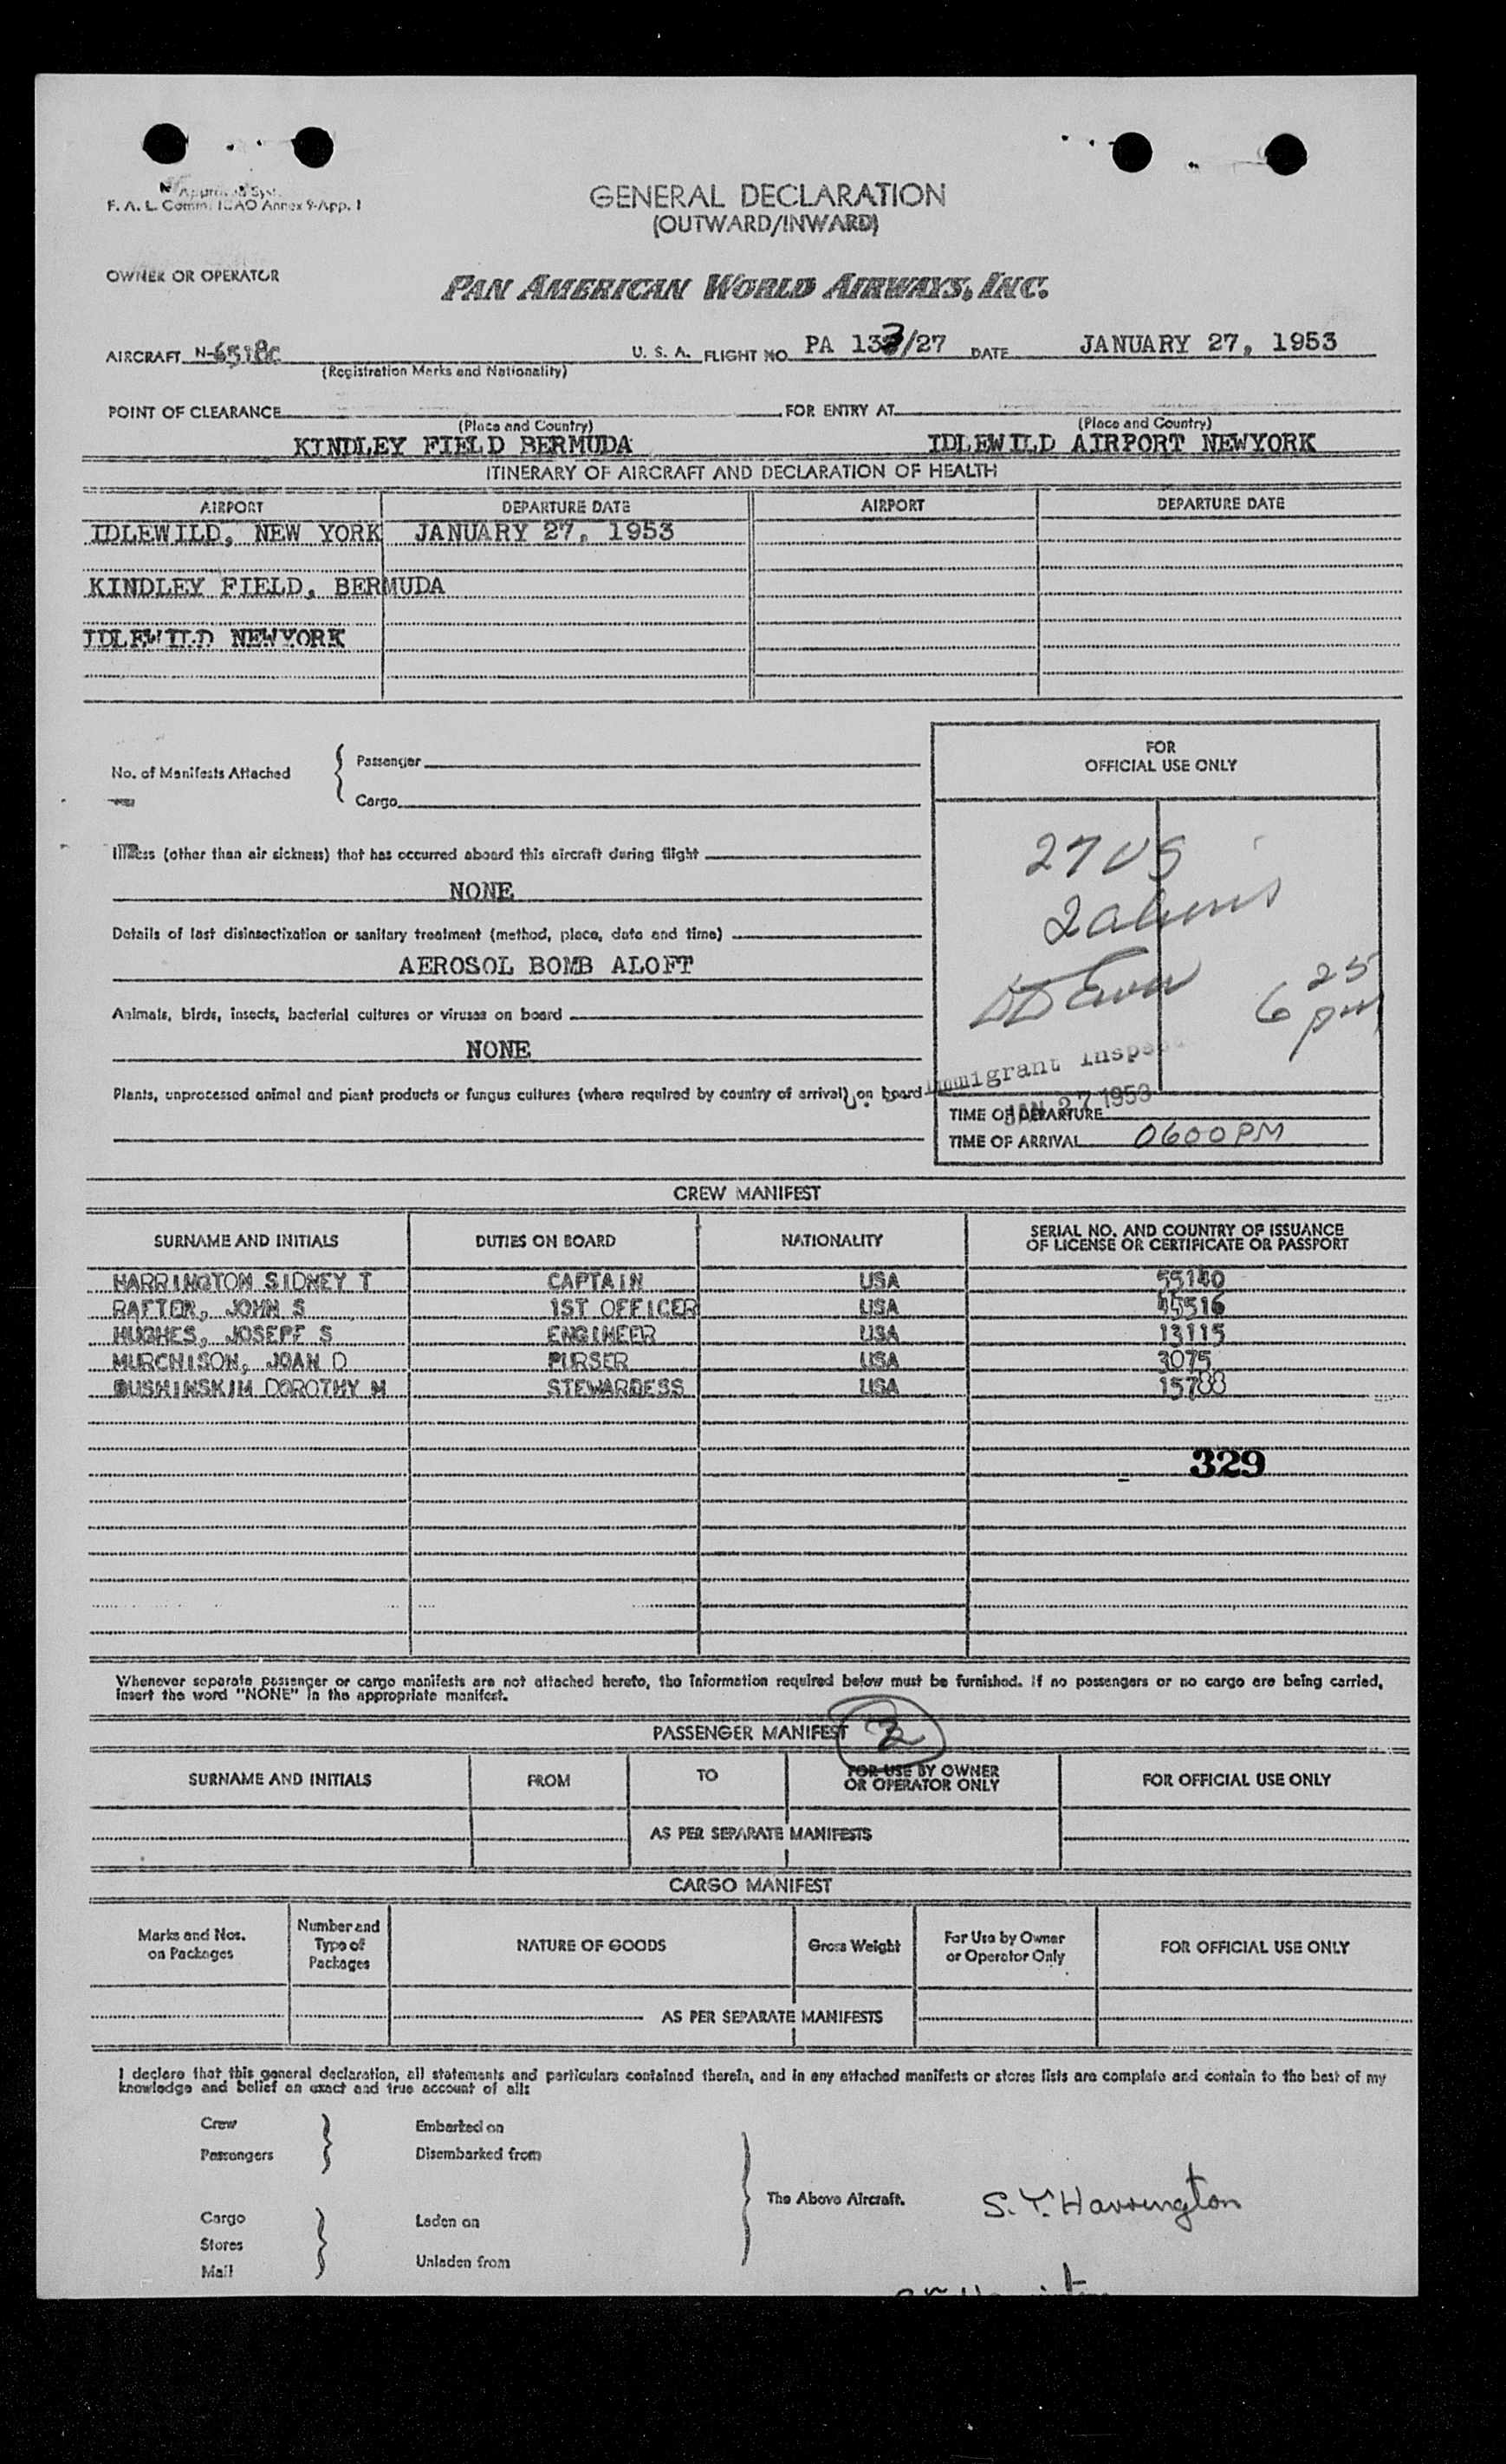 F. A. L. Comm. ICAO Annex 9-App. 1
GENERAL DECLARATION
(OUTWARD/INWARD)
OWNER OR OPERATOR
PAN AMERICAN WORLD AIRWAYS, INC.
AIRCRAFT N-6518C U. S. A. FLIGHT NO. PA 133/27 DATE JANUARY 27, 1953
(Registration Marks and Nationality)
POINT OF CLEARANCE FOR ENTRY AT
(Place and Country) (Place and Country)
KINDLEY FIELD BERMUDA IDLEWILD AIRPORT NEWYORK
ITINERARY OF AIRCRAFT AND DECLARATION OF HEALTH
AIRPORT DEPARTURE DATE AIRPORT DEPARTURE DATE
IDLEWILD, NEW YORK JANUARY 27, 1953
KINDLEY FIELD, BERMUDA
IDLEWILD NEWYORK
FOR
OFFICIAL USE ONLY
No. of Manifests Attached Passenger
Cargo
27 US
2 aliens
Illness (other than air sickness) that has occurred aboard this aircraft during flight
NONE
Details of last disinsectization or sanitary treatment (method, place, date and time)
AEROSOL BOMB ALOFT
6 25 pm
Animals, birds, insects, bacterial cultures or viruses on board
NONE
Immigrant Inspe
Plants, unprocessed animal and plant products or fungus cultures (where required by country of arrival) on board
JAN 27 1953
TIME OF DEPARTURE
TIME OF ARRIVAL 0600PM
CREW MANIFEST
SURNAME AND INITIALS DUTIES ON BOARD NATIONALITY SERIAL NO. AND COUNTRY OF ISSUANCE
OF LICENSE OR CERTIFICATE OR PASSPORT
HARRINGTON SIDNEY T CAPTAIN USA 55140
RAFTER, JOHN S 1ST OFFICER USA 45516
HUGHES, JOSEPF S ENGINEER USA 13115
MURCHISON, JOAN D PURSER USA 3075
BUSHINSKIM DOROTHY M STEWARDESS USA 15788
329
Whenever separate passenger or cargo manifests are not attached hereto, the information required below must be furnished. If no passengers or no cargo are being carried,
insert the word "NONE" in the appropriate manifest.
PASSENGER MANIFEST 2
SURNAME AND INITIALS FROM TO FOR USE BY OWNER
OR OPERATOR ONLY FOR OFFICIAL USE ONLY
AS PER SEPARATE MANIFESTS
CARGO MANIFEST
Marks and Nos.
on Packages
Number and
Type of
Packages
NATURE OF GOODS
Gross Weight
For Use by Owner
or Operator Only
FOR OFFICIAL USE ONLY
AS PER SEPARATE MANIFESTS
I declare that this general declaration, all statements and particulars contained therein, and in any attached manifests or stores lists are complete and contain to the best of my
knowledge and belief an exact and true account of all:
Crew Embarked on
Passengers Disembarked from
The Above Aircraft. S. T. Harrington
Cargo Laden on
Stores
Mail Unladen from